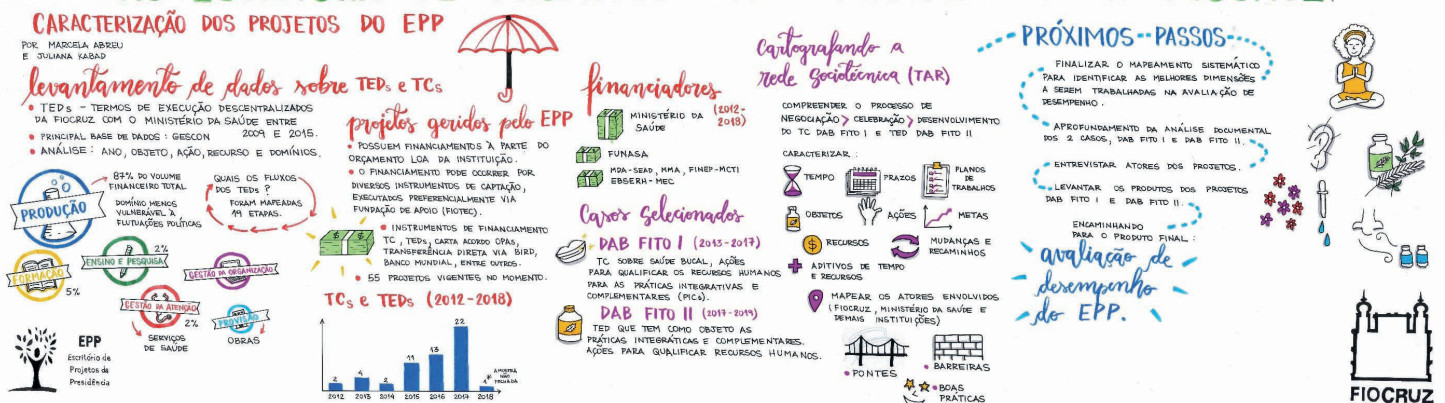 CARACTERIZAÇÃO DOS PROJETOS DO EPP
POR MARCELA ABREU
E JULIANA KABAD
levantamento de dados sobre TEDs e TCs
• TEDs - TERMOS DE EXECUÇÃO DESCENTRALIZADOS
DA FIOCRUZ COM O MINISTÉRIO DA SAÚDE ENTRE
2009 E 2015.
• PRINCIPAL BASE DE DADOS: GESCON
• ANÁLISE: ANO, OBJETO, AÇÃO, RECURSO E DOMÍNIOS.
PRODUÇÃO
87% DO VOLUME
FINANCEIRO TOTAL
DOMÍNIO MENOS
VULNERÁVEL À
FLUTUAÇÕES POLÍTICAS
QUAIS OS FLUXOS
DOS TEDs?
FORAM MAPEADAS
19 ETAPAS.
FORMAÇÃO
5%
ENSINO E PESQUISA
2%
GESTÃO DA ORGANIZAÇÃO
GESTÃO DA ATENÇÃO
2%
SERVIÇOS
DE SAÚDE
PROVISÃO
OBRAS
EPP
Escritório de
Projetos da
Presidência
projetos geridos pelo EPP
• POSSUEM FINANCIAMENTOS À PARTE DO
ORÇAMENTO LOA DA INSTITUIÇÃO.
• O FINANCIAMENTO PODE OCORRER POR
DIVERSOS INSTRUMENTOS DE CAPTAÇÃO,
EXECUTADOS PREFERENCIALMENTE VIA
FUNDAÇÃO DE APOIO (FIOTEC).
• INSTRUMENTOS DE FINANCIAMENTO
TC, TEDs, CARTA ACORDO OPAS,
TRANSFERÊNCIA DIRETA VIA BIRD,
BANCO MUNDIAL, ENTRE OUTROS.
• 55 PROJETOS VIGENTES NO MOMENTO.
TCs e TEDs (2012-2018)
2 4 2 11 13 22 1*
* AMOSTRA
NÃO
FECHADA
2012 2013 2014 2015 2016 2017 2018
financiadores
(2012-
2018)
MINISTÉRIO DA
SAÚDE
FUNASA
MDA-SEAD, MMA, FINEP-MCTI
EBSERH-MEC
Casos Selecionados
DAB FITO I (2013-2017)
TC SOBRE SAÚDE BUCAL, AÇÕES
PARA QUALIFICAR OS RECURSOS HUMANOS
PARA AS PRÁTICAS INTEGRATIVAS E
COMPLEMENTARES (PICs).
DAB FITO II (2017-2019)
TED QUE TEM COMO OBJETO AS
PRÁTICAS INTEGRATIVAS E COMPLEMENTARES.
AÇÕES PARA QUALIFICAR RECURSOS HUMANOS.
Cartografando a
rede Sociotécnica (TAR)
COMPREENDER O PROCESSO DE
NEGOCIAÇÃO > CELEBRAÇÃO > DESENVOLVIMENTO
DO TC DAB FITO I E TED DAB FITO II
CARACTERIZAR:
TEMPO
PRAZOS
PLANOS
DE
TRABALHOS
OBJETOS
AÇÕES
METAS
RECURSOS
MUDANÇAS E
RECAMINHOS
ADITIVOS DE TEMPO
E RECURSOS
MAPEAR OS ATORES ENVOLVIDOS
(FIOCRUZ, MINISTÉRIO DA SAÚDE E
DEMAIS INSTITUIÇÕES)
• PONTES
• BARREIRAS
• BOAS
PRÁTICAS
PRÓXIMOS PASSOS
FINALIZAR O MAPEAMENTO SISTEMÁTICO
PARA IDENTIFICAR AS MELHORES DIMENSÕES
A SEREM TRABALHADAS NA AVALIAÇÃO DE
DESEMPENHO.
APROFUNDAMENTO DA ANÁLISE DOCUMENTAL
DOS 2 CASOS, DAB FITO I E DAB FITO II.
ENTREVISTAR ATORES DOS PROJETOS.
LEVANTAR OS PRODUTOS DOS PROJETOS
DAB FITO I E DAB FITO II.
ENCAMINHANDO
PARA O PRODUTO FINAL:
avaliação de
desempenho
do EPP.
FIOCRUZ